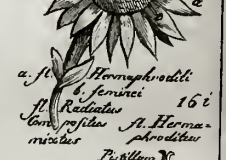 a
a. fl. Hermaphroditi
b. feminei
fl. Radiatus 16 i
Compositus fl. Herma=
mixtus phroditus
Pistillum